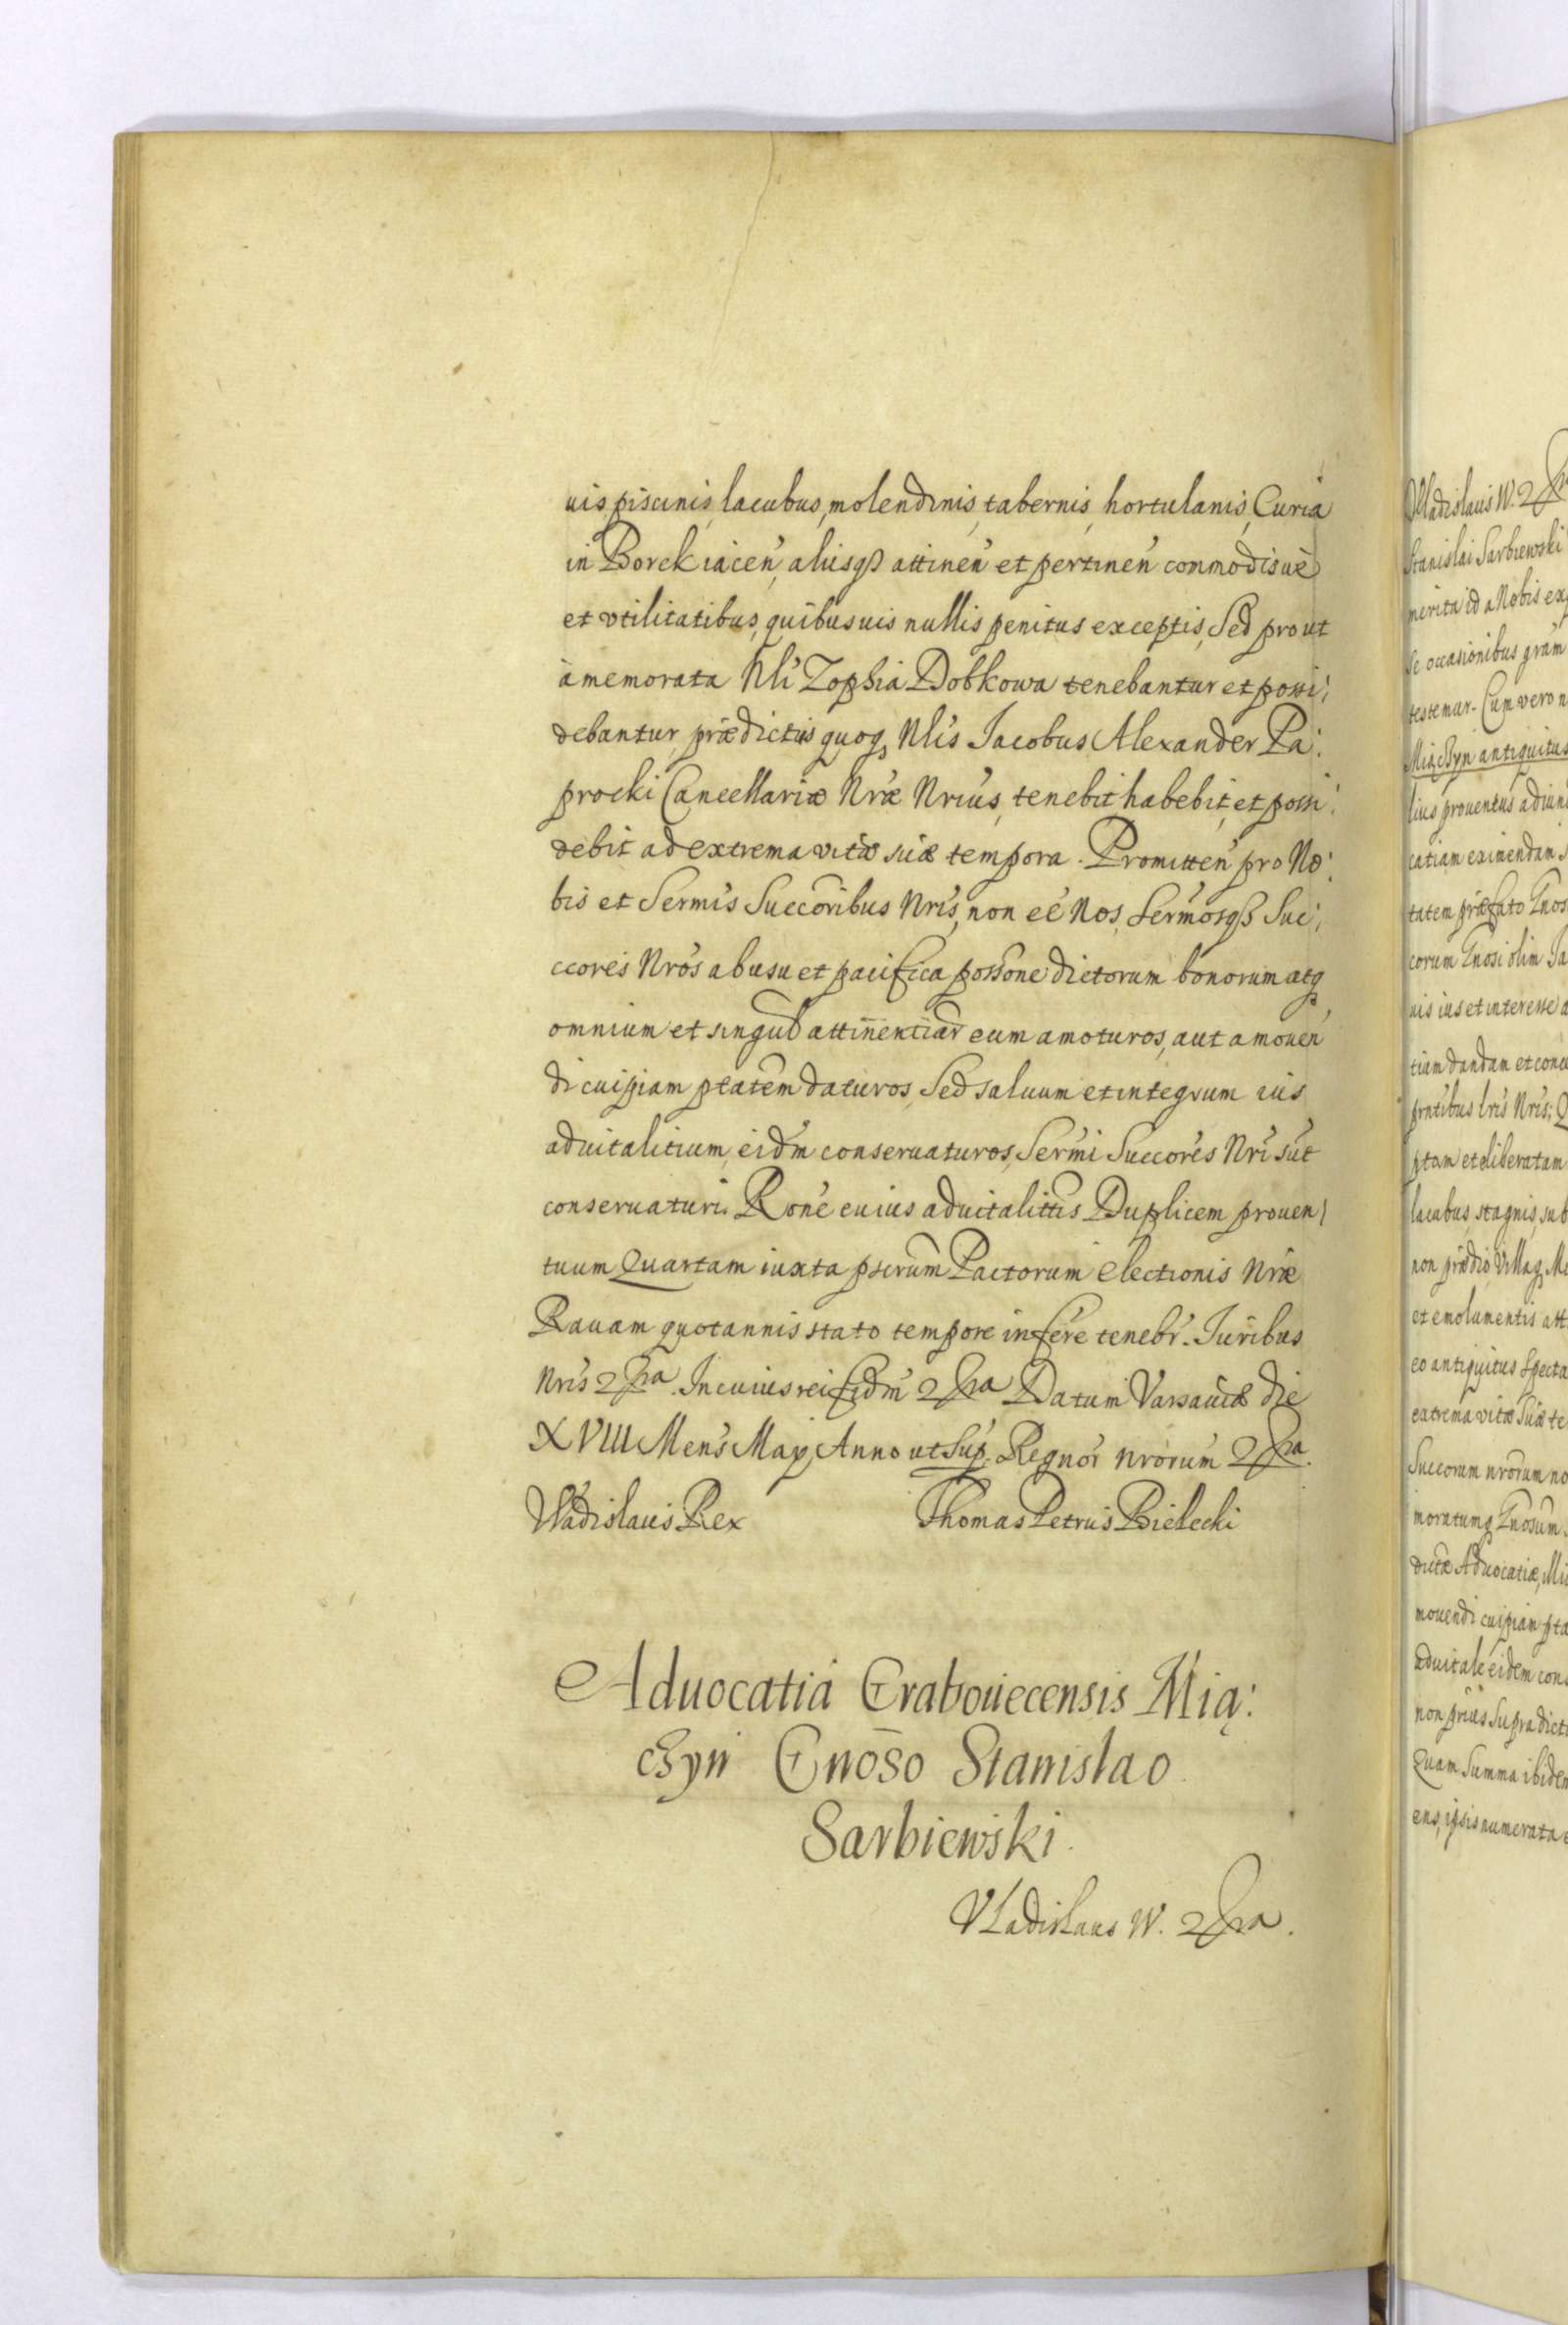 uis, piscinis, lacubus, molendinis, tabernis, hortulanis, Curia
in Borek iacen̄, alijsq̃ attinen̄ et pertinen̄ commodis uè
et vtilitatibus, quibusuis nullis penitus exceptis, Sed prout
à memorata Nli Zophia Dobkowa tenebantur et possi:
debantur, prædictus quoq, Nlis Jacobus Alexander Pa:
procki Cancellariæ Nræ Nrius, tenebit habebit, et possi:
debit ad extrema vitæ suæ tempora. Promitten̄ pro No:
bis et Sermis Succoribus Nris, non eē Nos, Sermosq̃ Suc:
ccores Nros ab usu et pacifica possone dictorum bonorum atq
omnium et singul attinentiar eum amoturos, aut amouen
di cuipiam ptatem daturos, Sed saluum et integrum ius
aduitalitium, eidm conseruaturos, Sermi Succores Nri sūt
conseruaturi. Rone cuius aduitalittis Duplicem prouen
tuum Quartam iuxta pscrum Pactorum electionis Nræ
Rauam quotannis stato tempore inferre tenebr. Juribus
Nris 2ra. In cuius rei fidm 2ra Datum Varsauiæ die
XVIII Mens Maij Anno ut sup. Regnor nrorum 2ra.
Vladislaus Rex Thomas Petrus Bielecki
Aduocatia Grabouecensis Mią:
chyn Gnoso Stanislao
Sarbiewski.
Vladislaus IV. 2ra.
Vladislaus IV. 2ra
Stanislai Sarbiewski
merita id a Nobis ex
se occasionibus gram
testemur. Cum vero n
Miączyn antiquitus
lius prouentus adiun
catiam eximendam
tatem præfato Gnos
corum Gnosi olim Ja
uis ius et interesse a
tiam dandam et conc
pntibus lris Nris; Q
ptam et eliberatam
lacubus, stagnis, sub
non prædio, Villaq, Mi
et emolumentis att
eo antiquitus specta
extrema vitæ suæ te
Succorum nrorum no
moratumq Gnosum
dictæ Aduocatiæ, Mi
mouendi cuipiam pta
aduitale eidem cons
non prius supra dict
Quam Summa ibidem
ens, ipsis numerata e